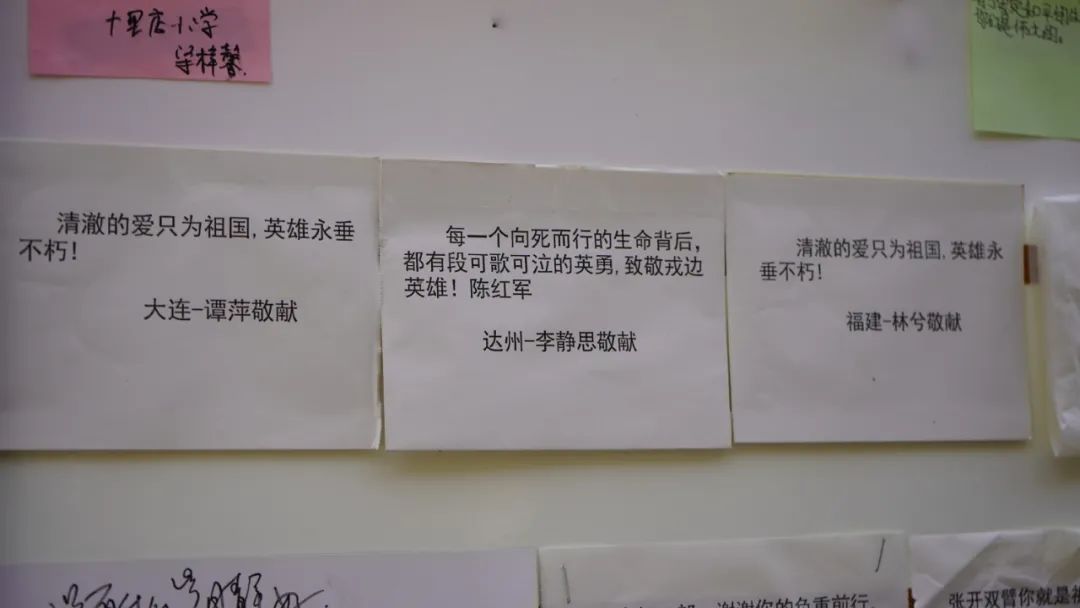 十里店小学
梁梓馨
清澈的爱只为祖国,英雄永垂
不朽!
大连-谭萍敬献
每一个向死而行的生命背后,
都有段可歌可泣的英勇,致敬戎边
英雄! 陈红军
达州-李静思敬献
清澈的爱只为祖国,英雄永
垂不朽!
福建-林兮敬献
谢谢你的负重前行。
张开双臂你就是祖